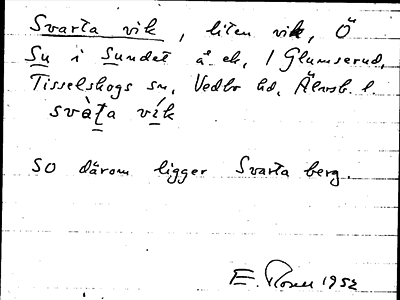 Svarta vik, liten vik, Ö
Su i Sundet å ek, / Glumserud,
Tisselskogs sn, Vedbo hd, Älvsb. l.
svàṯa vík
SO därom ligger Svarta berg.
E. Rosell 1952